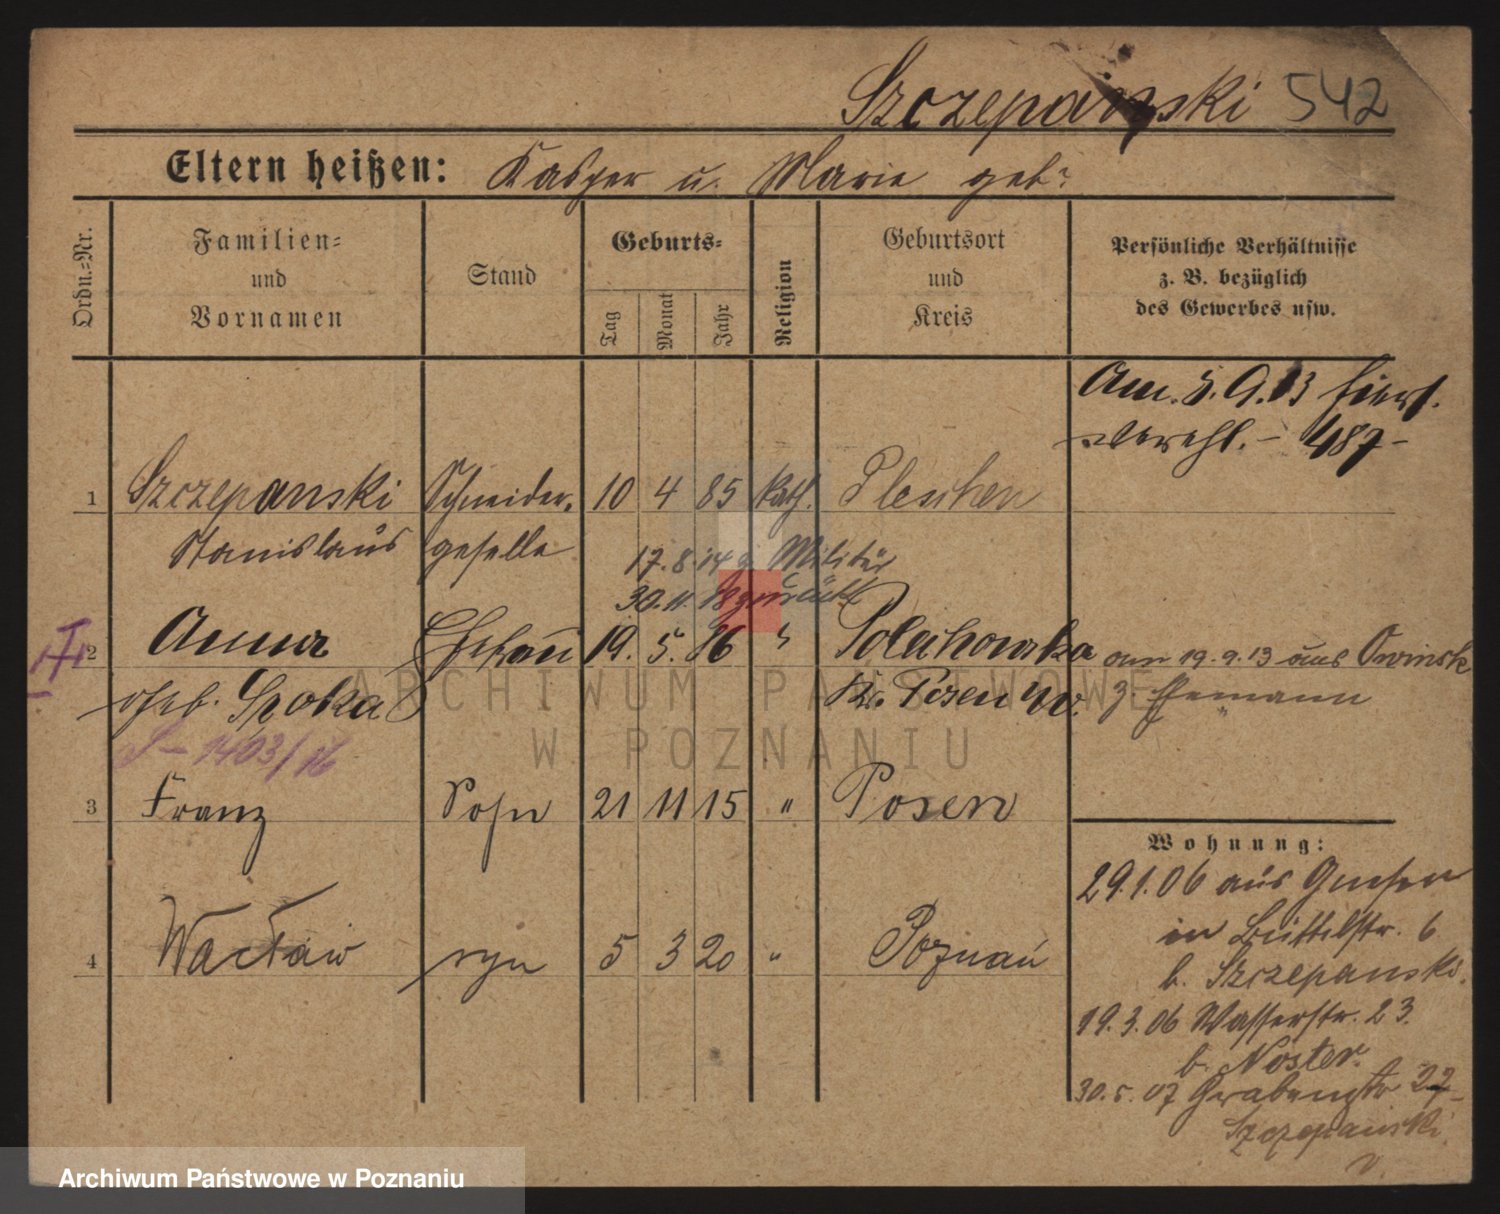 Szczepański 542
Eltern heißen: Kasper u. Marie geb?
Ordn.=Nr.
Familien=
und
Vornamen
Stand
Geburts=
Tag
Monat
Jahr
Religion
Geburtsort
und
Kreis
Persönliche Verhältnisse
z. B. bezüglich
des Gewerbes usw.
Am. 5. 9. 13 hiers.
verehl. – 487 –
1 Szczepanski Schneider- 10 4 85 kath. Pleschen
Stanislaus geselle
17. 8. 14 z. Militär
30. 11. 18 zurück
2 Anna Ehefrau 19. 5. 86 " am 19. 9. 13 aus Owinsk
geb. Spoka Kr. Posen W. z. Ehemann
1403/16
3 Franz Sohn 21 11 15 " Posen
4 Wacław syn 5 3 20 " Poznań
Wohnung:
29.1.06 aus Gnesen
in Büttelstr. 6
b. Szczepanski.
19.3.06 Wasserstr. 23.
b. Noster.
30.5.07 Grabenstr 27
Szczepański
ARCHIWUM PAŃSTWOWE
W POZNANIU
Archiwum Państwowe w Poznaniu